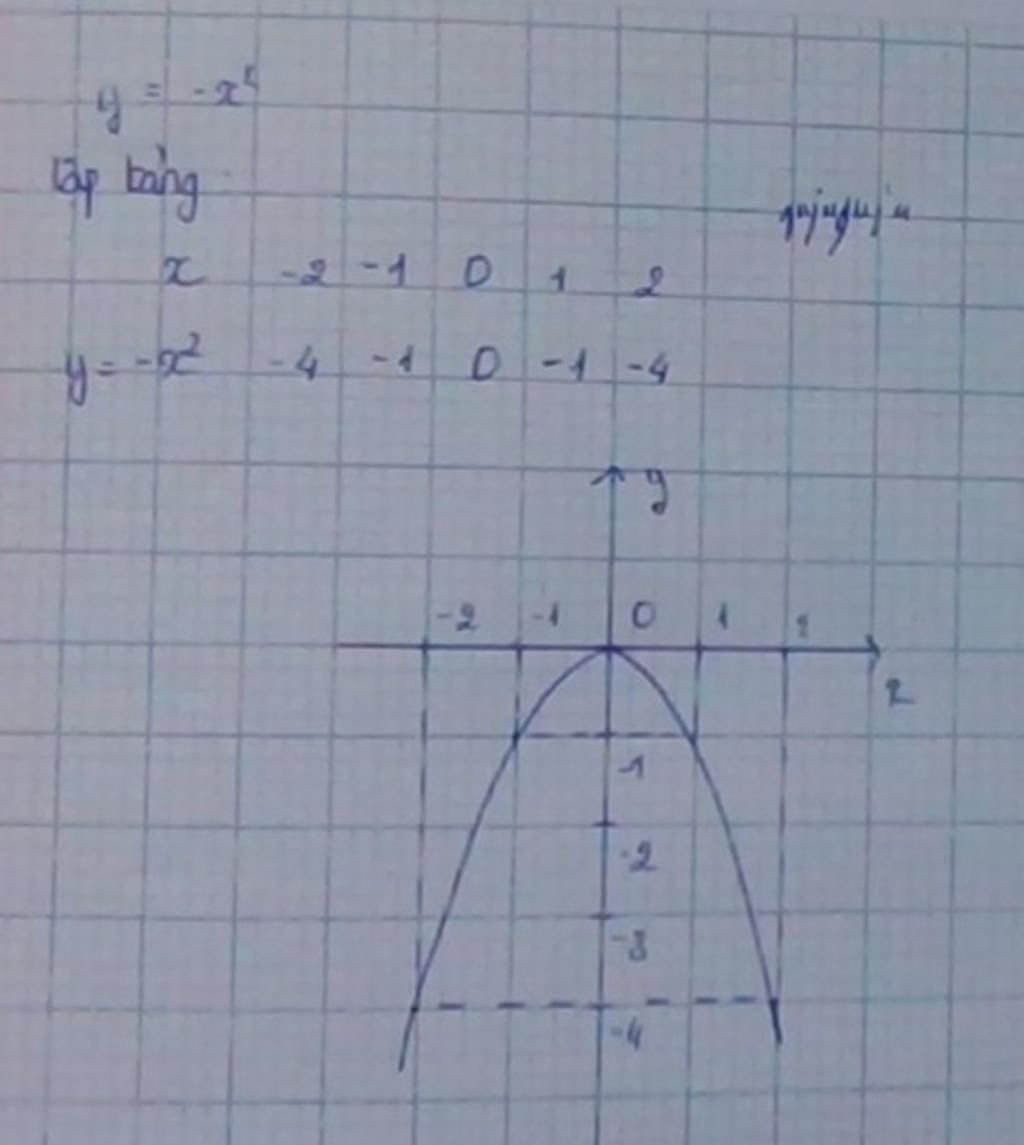 y = -x²
lập bảng
x -2 -1 0 1 2
y = -x² -4 -1 0 -1 -4
y
-2 -1 0 1 2
x
-1
-2
-3
-4